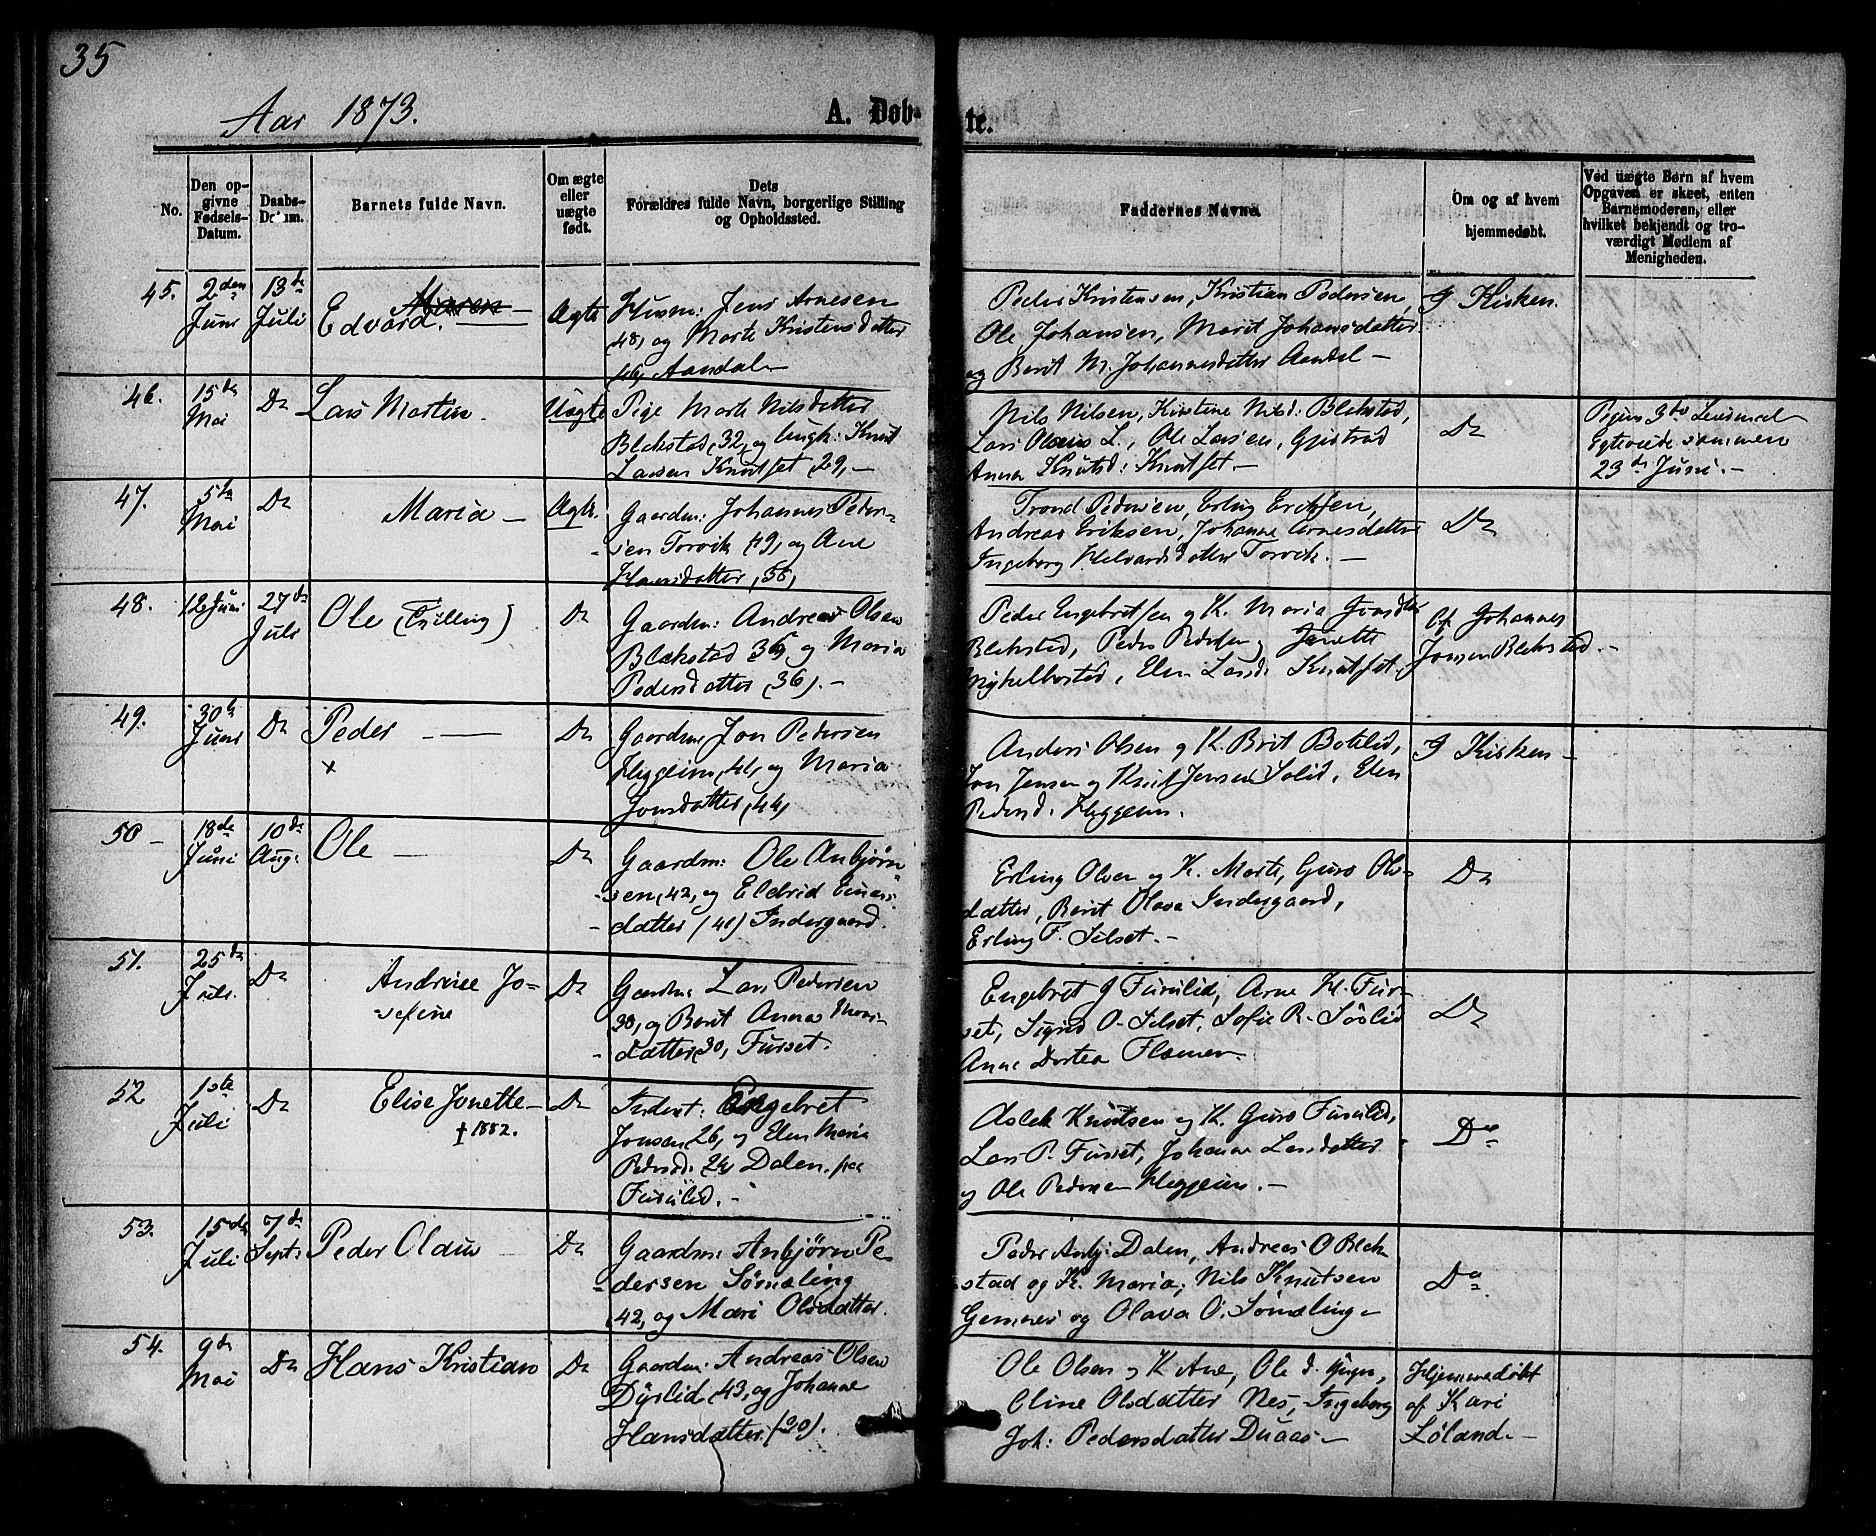 35
Aar 1873.
A. Døb-
te.
No.
Den op-
givne
Fødsels-
Datum.
Daabs-
Datum.
Barnets fulde Navn.
Om ægte
eller
uægte
født.
Dets
Forældres fulde Navn, borgerlige Stilling
og Opholdssted.
Faddernes Navne.
Om og af hvem
hjemmedøbt.
Ved uægte Børn af hvem
Opgaven er skeet, enten
Barnemoderen, eller
hvilket bekjendt og tro-
værdigt Medlem af
Menigheden.
45. 2den Juni 13de Juli
Maren
Edvard.
Ægte
Husm: Jens Arnesen
48, og Marte Kristensdatter
46, Aandal
Peder Kristensen, Kristian Pedersen,
Ole Johansen, Marit Johansdatter
og Berit M. Johannesdatter Aandal -
I Kirken.
46. 15de Mai Do
Lars Martin.
Uægte
Pige Marte Nilsdatter
Blekstad, 32, og Ungk: Knut
Larsen Knutset 29,-
Nils Nilsen, Kirstine Nilsd: Blekstad,
Lars Olsens L., Ole Larsen, Gjustad
Anna Knutsd: Knutset.-
Do
Pigens 3de Leiermaal
Egteviede sammen
23de Juni.-
47. 5te Mai Do
Maria -
Ægte.
Gaardm: Johannes Peder-
sen Torvik 49, og Ane
Hansdatter,
Trond Pedersen, Erling Eriksen,
Andreas Eriksen, Johanne Arnesdatter
Ingeborg Halvardsdatter Torvik.-
Do
48. 12 Juni 27de Juli
Ole (Tvilling)
Do
Gaardm: Andreas Olsen
Blekstad 36, og Maria
Pedersdatter (36).-
Peder Engebretsen og K. Maria
Blekstad, Peder Pedersen og Jonette
Mykelbostad, Elen Larsd: Knutset.
af Johannes
Jonsen Blekstad.-
49. 30te Juni Do
Peder
x
Do
Gaardm Jon Pedersen
Heggeim, 41, og Maria
Jonsdatter, 44,
Anders Olsen og K. Brit Botelid,
Jon Jensen og Knut Jensen Solid, Elen
Pedersd: Heggeim.
I Kirken-
50 - 18de Juni 10de Aug:
Ole
Do
Gaardm: Ole Anbjørn-
sen, 42, og Eldrid Einars-
datter (41) Indergaard.
Erling Olsen og K. Marte, Guro Ols-
datter, Berit Olava Indergaard,
Erling F. Silset.-
Do
51. 25de Do
Andrine Jo-
sefine
Do
Gaardm: Lars Pedersen
30, og Berit Anna
datter, 30, Furset.
Engebret J Furulid, Arne K. Fur-
set, Sigrid O. Silset, Sofie R. Søvlid
Anne Dortea Flemmen
Do
52 1ste Juli Do
Elise Jonette-
† 1882.
Do
Inderst: Engebret
Jonsen 26, og Elen Maria
Pedersd: 24 Dalen. paa
Furulid.-
Aslak Knutsen og K. Guro Furulid,
Lars P. Furset, Johanne Larsdatter
og Ole Pedersen Heggeim.-
Do
53. 15de Juli 7de Sept:
Peder Olaus
Do
Gaardm: Anbjørn Pe-
dersen Sømæling
42, og Mari Olsdatter.
Peder Anbj: Dalen, Andreas O Blek-
stad og K. Maria; Nils Knutsen
Gemnes og Olava O. Sømæling-
Do
54. 9de Mai Do
Hans Kristian
Do
Gaardm: Andreas Olsen
Dyrlid, 43, og Johanne
Hansdatter. (30).
Ole Olsen og K Ane, Ole d. yngr,
Oline Olsdatter Nes, Ingeborg
Joh: Pedersdatter Duaas-
Hjemmedøbt
af Kari
Løland.-